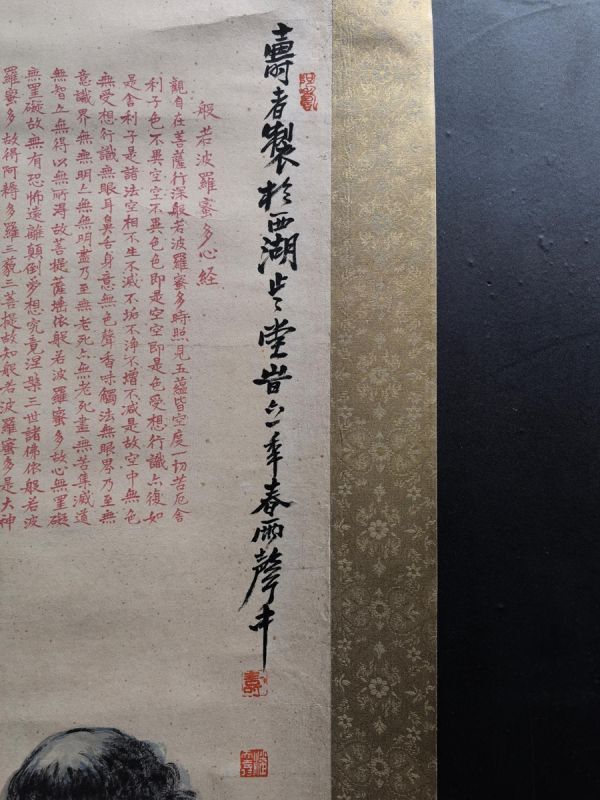 壽者製於西湖堂春雨聲中
般若波羅蜜多心経
觀自在菩薩行深般若波羅蜜多時照見五蘊皆空度一切苦厄舍
利子色不異空空不異色色即是空空即是色受想行識亦復如
是舍利子是諸法空相不生不滅不垢不淨不增不減是故空中無色
無受想行識無眼耳鼻舌身意無色聲香味觸法無眼界乃至無
意識界無無明亦無無明盡乃至無老死亦無老死盡無苦集滅道
無智亦無得以無所得故菩提薩埵依般若波羅蜜多故心無罣礙
無罣礙故無有恐怖遠離顛倒夢想究竟涅槃三世諸佛依般若波
羅蜜多故得阿耨多羅三藐三菩提故知般若波羅蜜多是大神